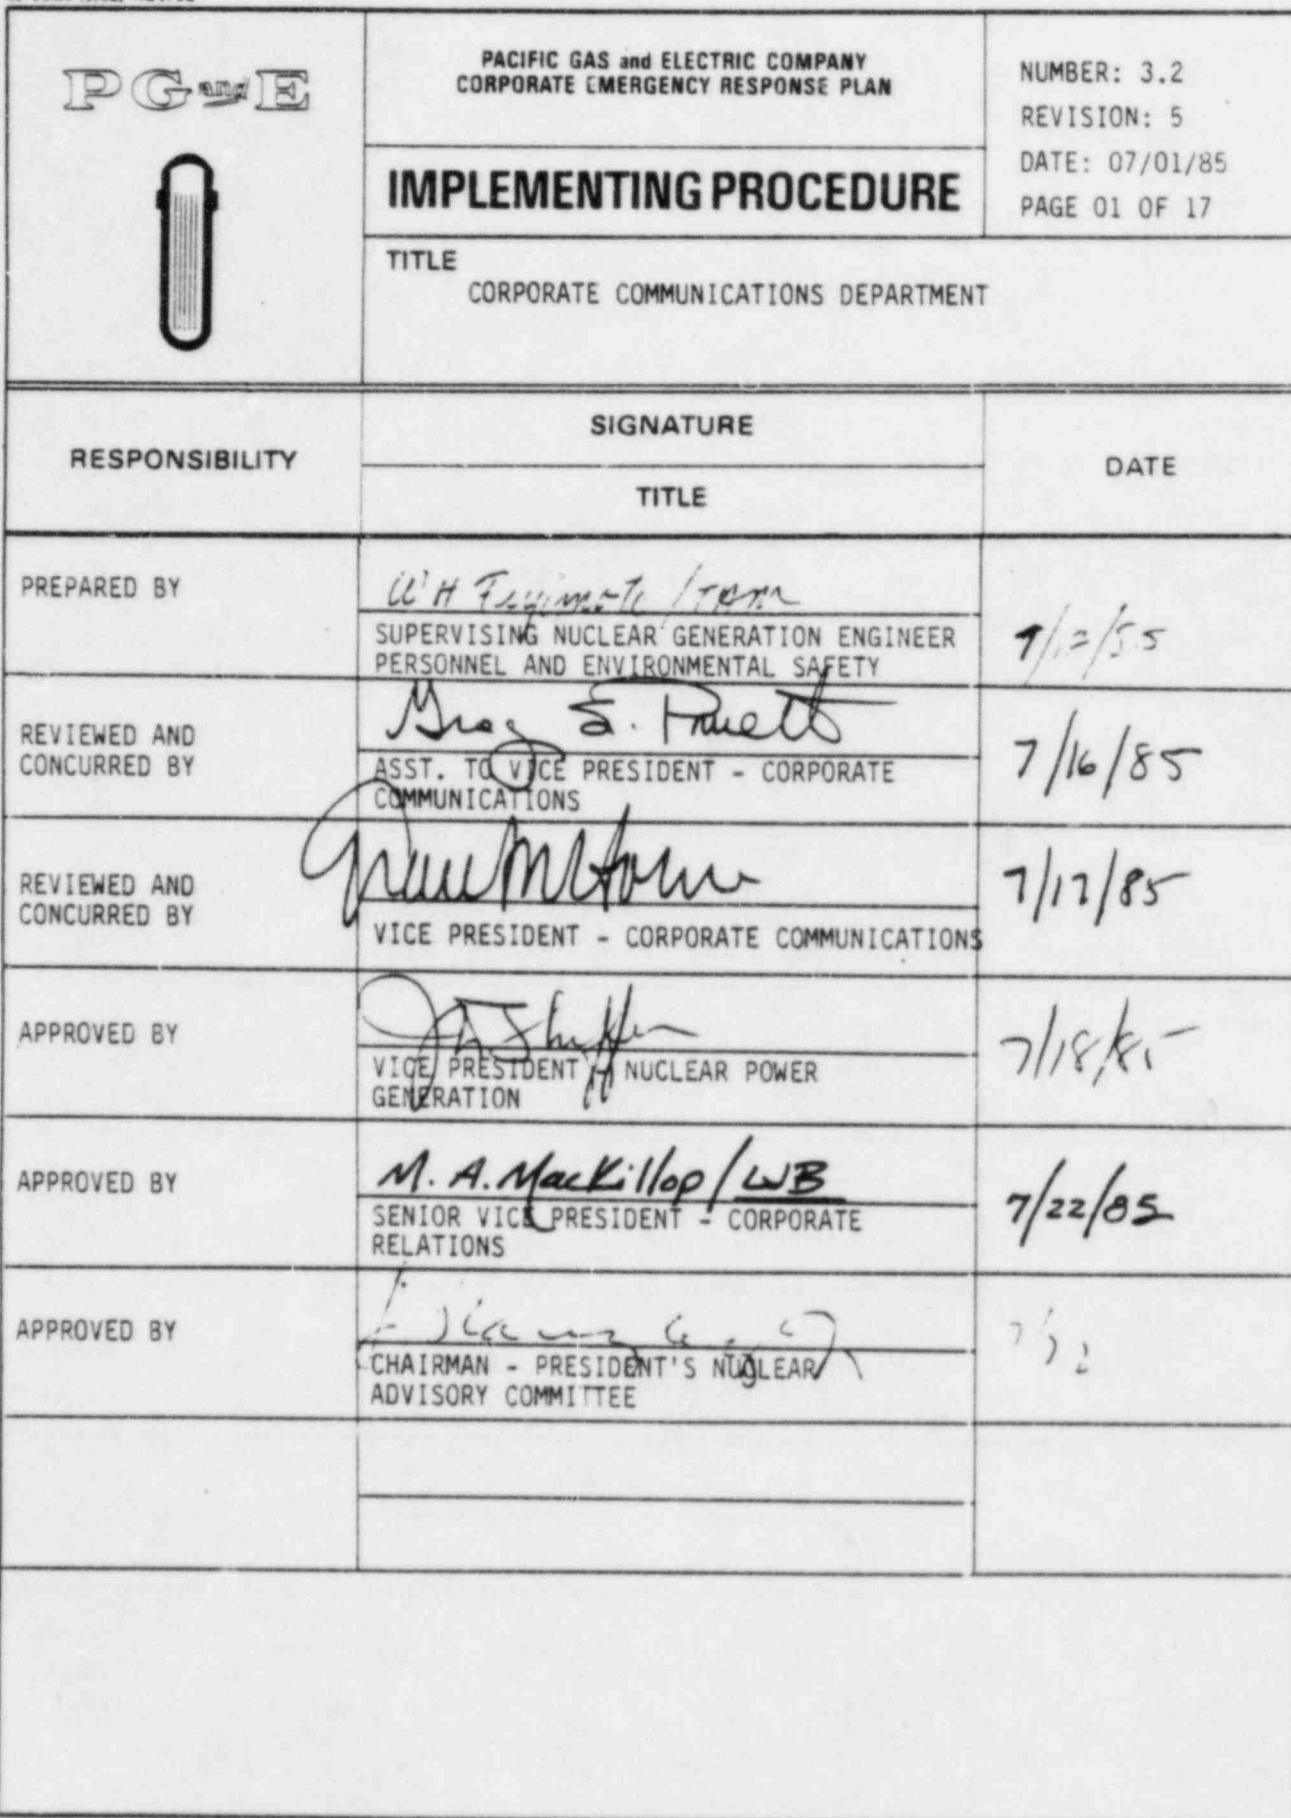 PG and E
PACIFIC GAS and ELECTRIC COMPANY
CORPORATE EMERGENCY RESPONSE PLAN
IMPLEMENTING PROCEDURE
NUMBER: 3.2
REVISION: 5
DATE: 07/01/85
PAGE 01 OF 17
TITLE
CORPORATE COMMUNICATIONS DEPARTMENT
RESPONSIBILITY
SIGNATURE
TITLE
DATE
PREPARED BY
W H Fujimoto /
SUPERVISING NUCLEAR GENERATION ENGINEER
PERSONNEL AND ENVIRONMENTAL SAFETY
REVIEWED AND
CONCURRED BY
Greg S. Pruett
ASST. TO VICE PRESIDENT - CORPORATE
COMMUNICATIONS
7/16/85
REVIEWED AND
CONCURRED BY
VICE PRESIDENT - CORPORATE COMMUNICATIONS
7/17/85
APPROVED BY
VICE PRESIDENT - NUCLEAR POWER
GENERATION
7/18/85
APPROVED BY
M. A. MacKillop/WB
SENIOR VICE PRESIDENT - CORPORATE
RELATIONS
7/22/85
APPROVED BY
CHAIRMAN - PRESIDENT'S NUCLEAR
ADVISORY COMMITTEE